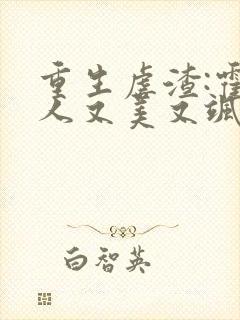 重生虐渣:霍
人又美又飒
白智英